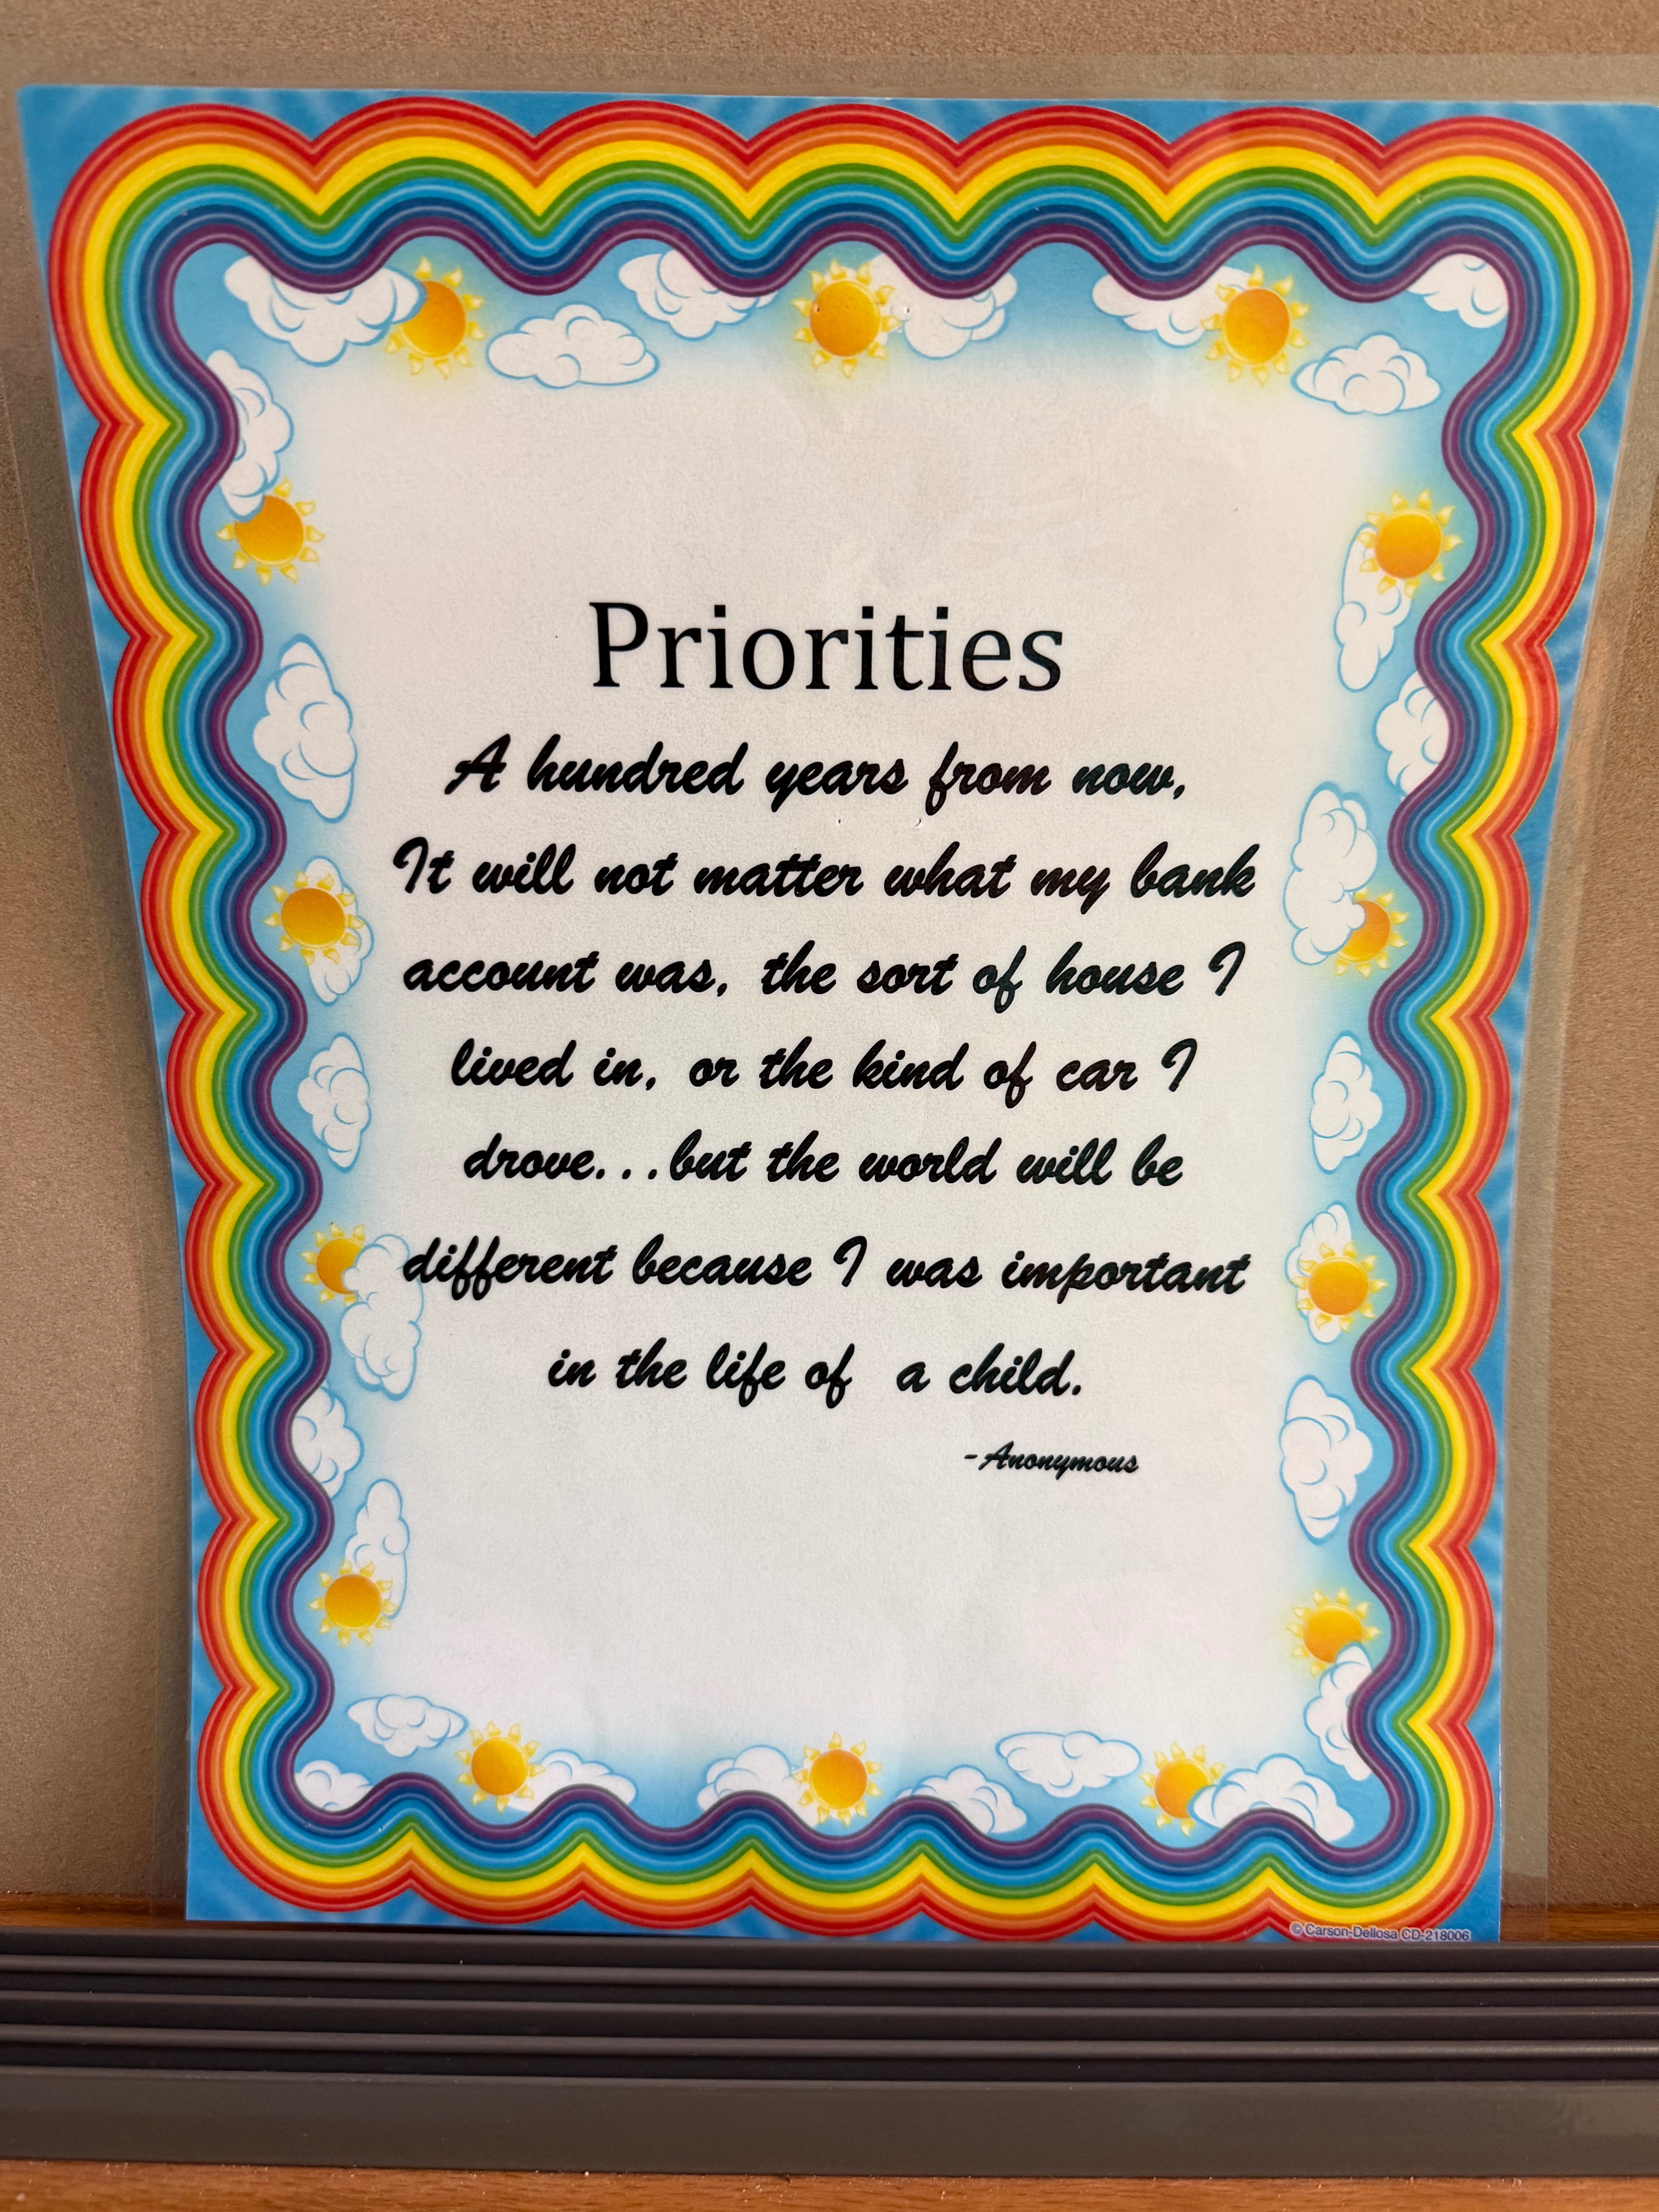 Priorities
A hundred years from now,
It will not matter what my bank
account was, the sort of house I
lived in, or the kind of car I
drove...but the world will be
different because I was important
in the life of a child.
-Anonymous
© Carson-Dellosa CD-218006